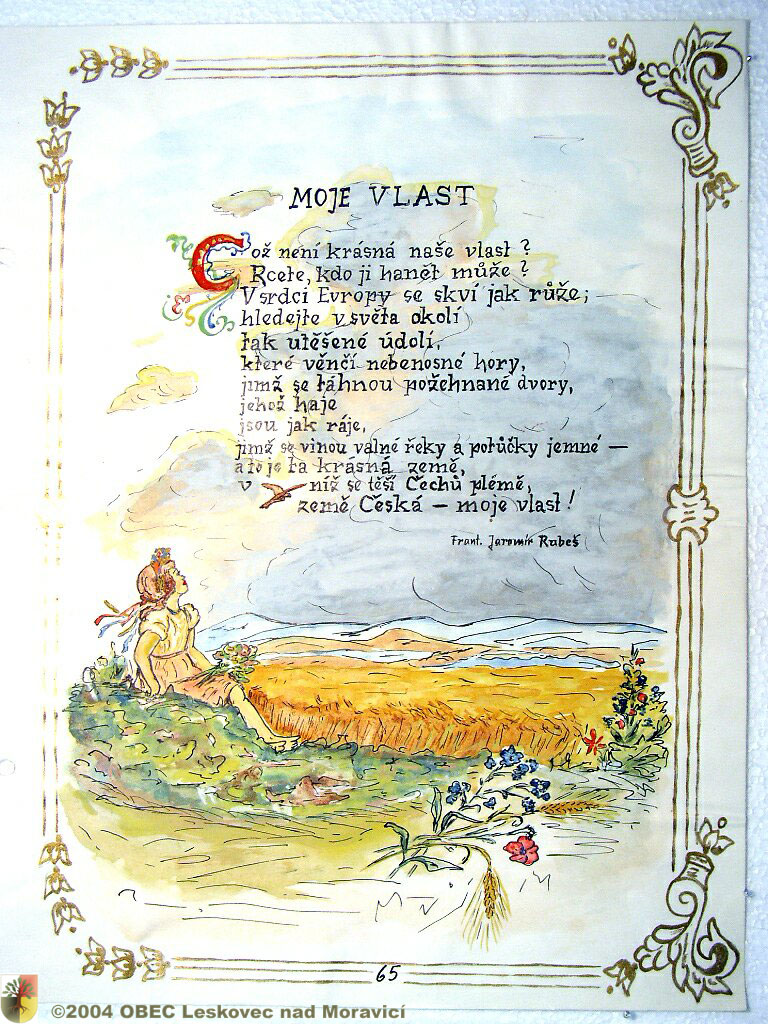 MOJE VLAST
Což není krásná naše vlast ?
Rcete, kdo ji hanět může ?
V srdci Evropy se skví jak růže;
hledejte v světa okolí
tak utěšené údolí,
které věnčí nebenosné hory,
jimž se táhnou požehnané dvory,
jehož haje
jsou jak ráje,
jimž se vinou valné řeky a potůčky jemné —
a to je ta krásná země,
v níž se těší Čechů plémě,
země Česká — moje vlast !
Frant. Jaromír Rubeš
65
©2004 OBEC Leskovec nad Moravicí